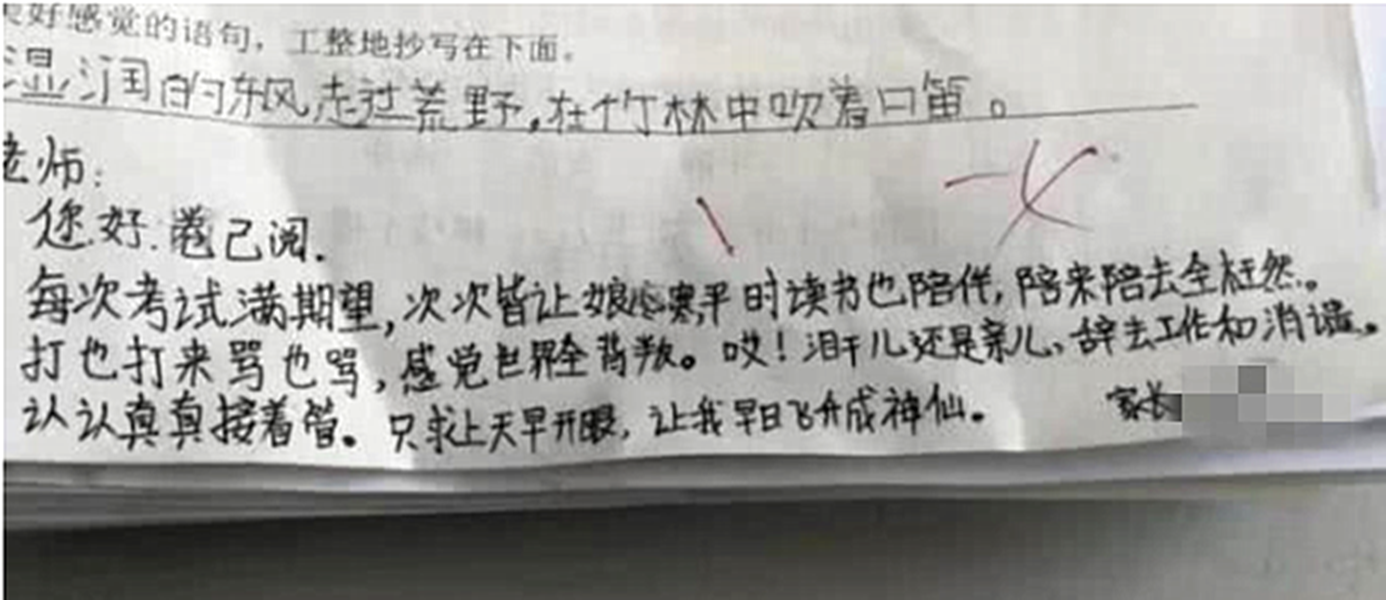 好感觉的语句，工整地抄写在下面。
湿润的东风走过荒野，在竹林中吹着口笛。
老师：
您好.卷已阅.
每次考试满期望，次次皆让娘心寒，平时读书也陪伴，陪来陪去全枉然。
打也打来骂也骂，感觉世界全背叛。哎！泪干儿还是亲儿、辞去工作和消遣。
认认真真接着管。只求上天早开眼，让我早日飞升成神仙。
家长